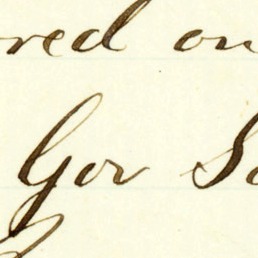 red on
Gov S